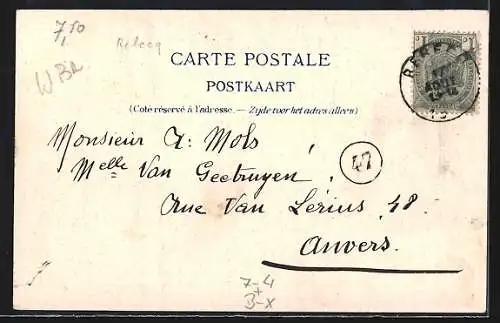 7,50
Rebecq
W Br
CARTE POSTALE
POSTKAART
(Coté réservé à l'adresse. — Zijde voor het adres alleen)
Monsieur A: Mols
Melle Van Geetruyen
47
Rue Van Lérius 48.
Anvers.
7-4
+
3-X